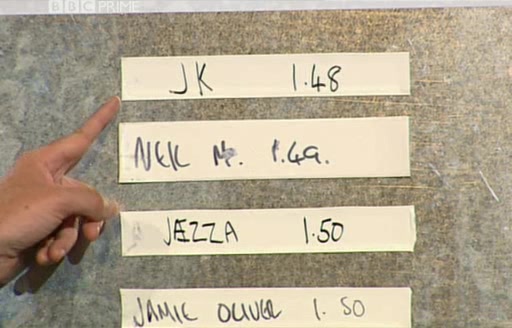 BBC PRIME
JK 1.48
NEIL M. 1.49.
JÆZZA 1.50
JAMIE OLIVER 1.50